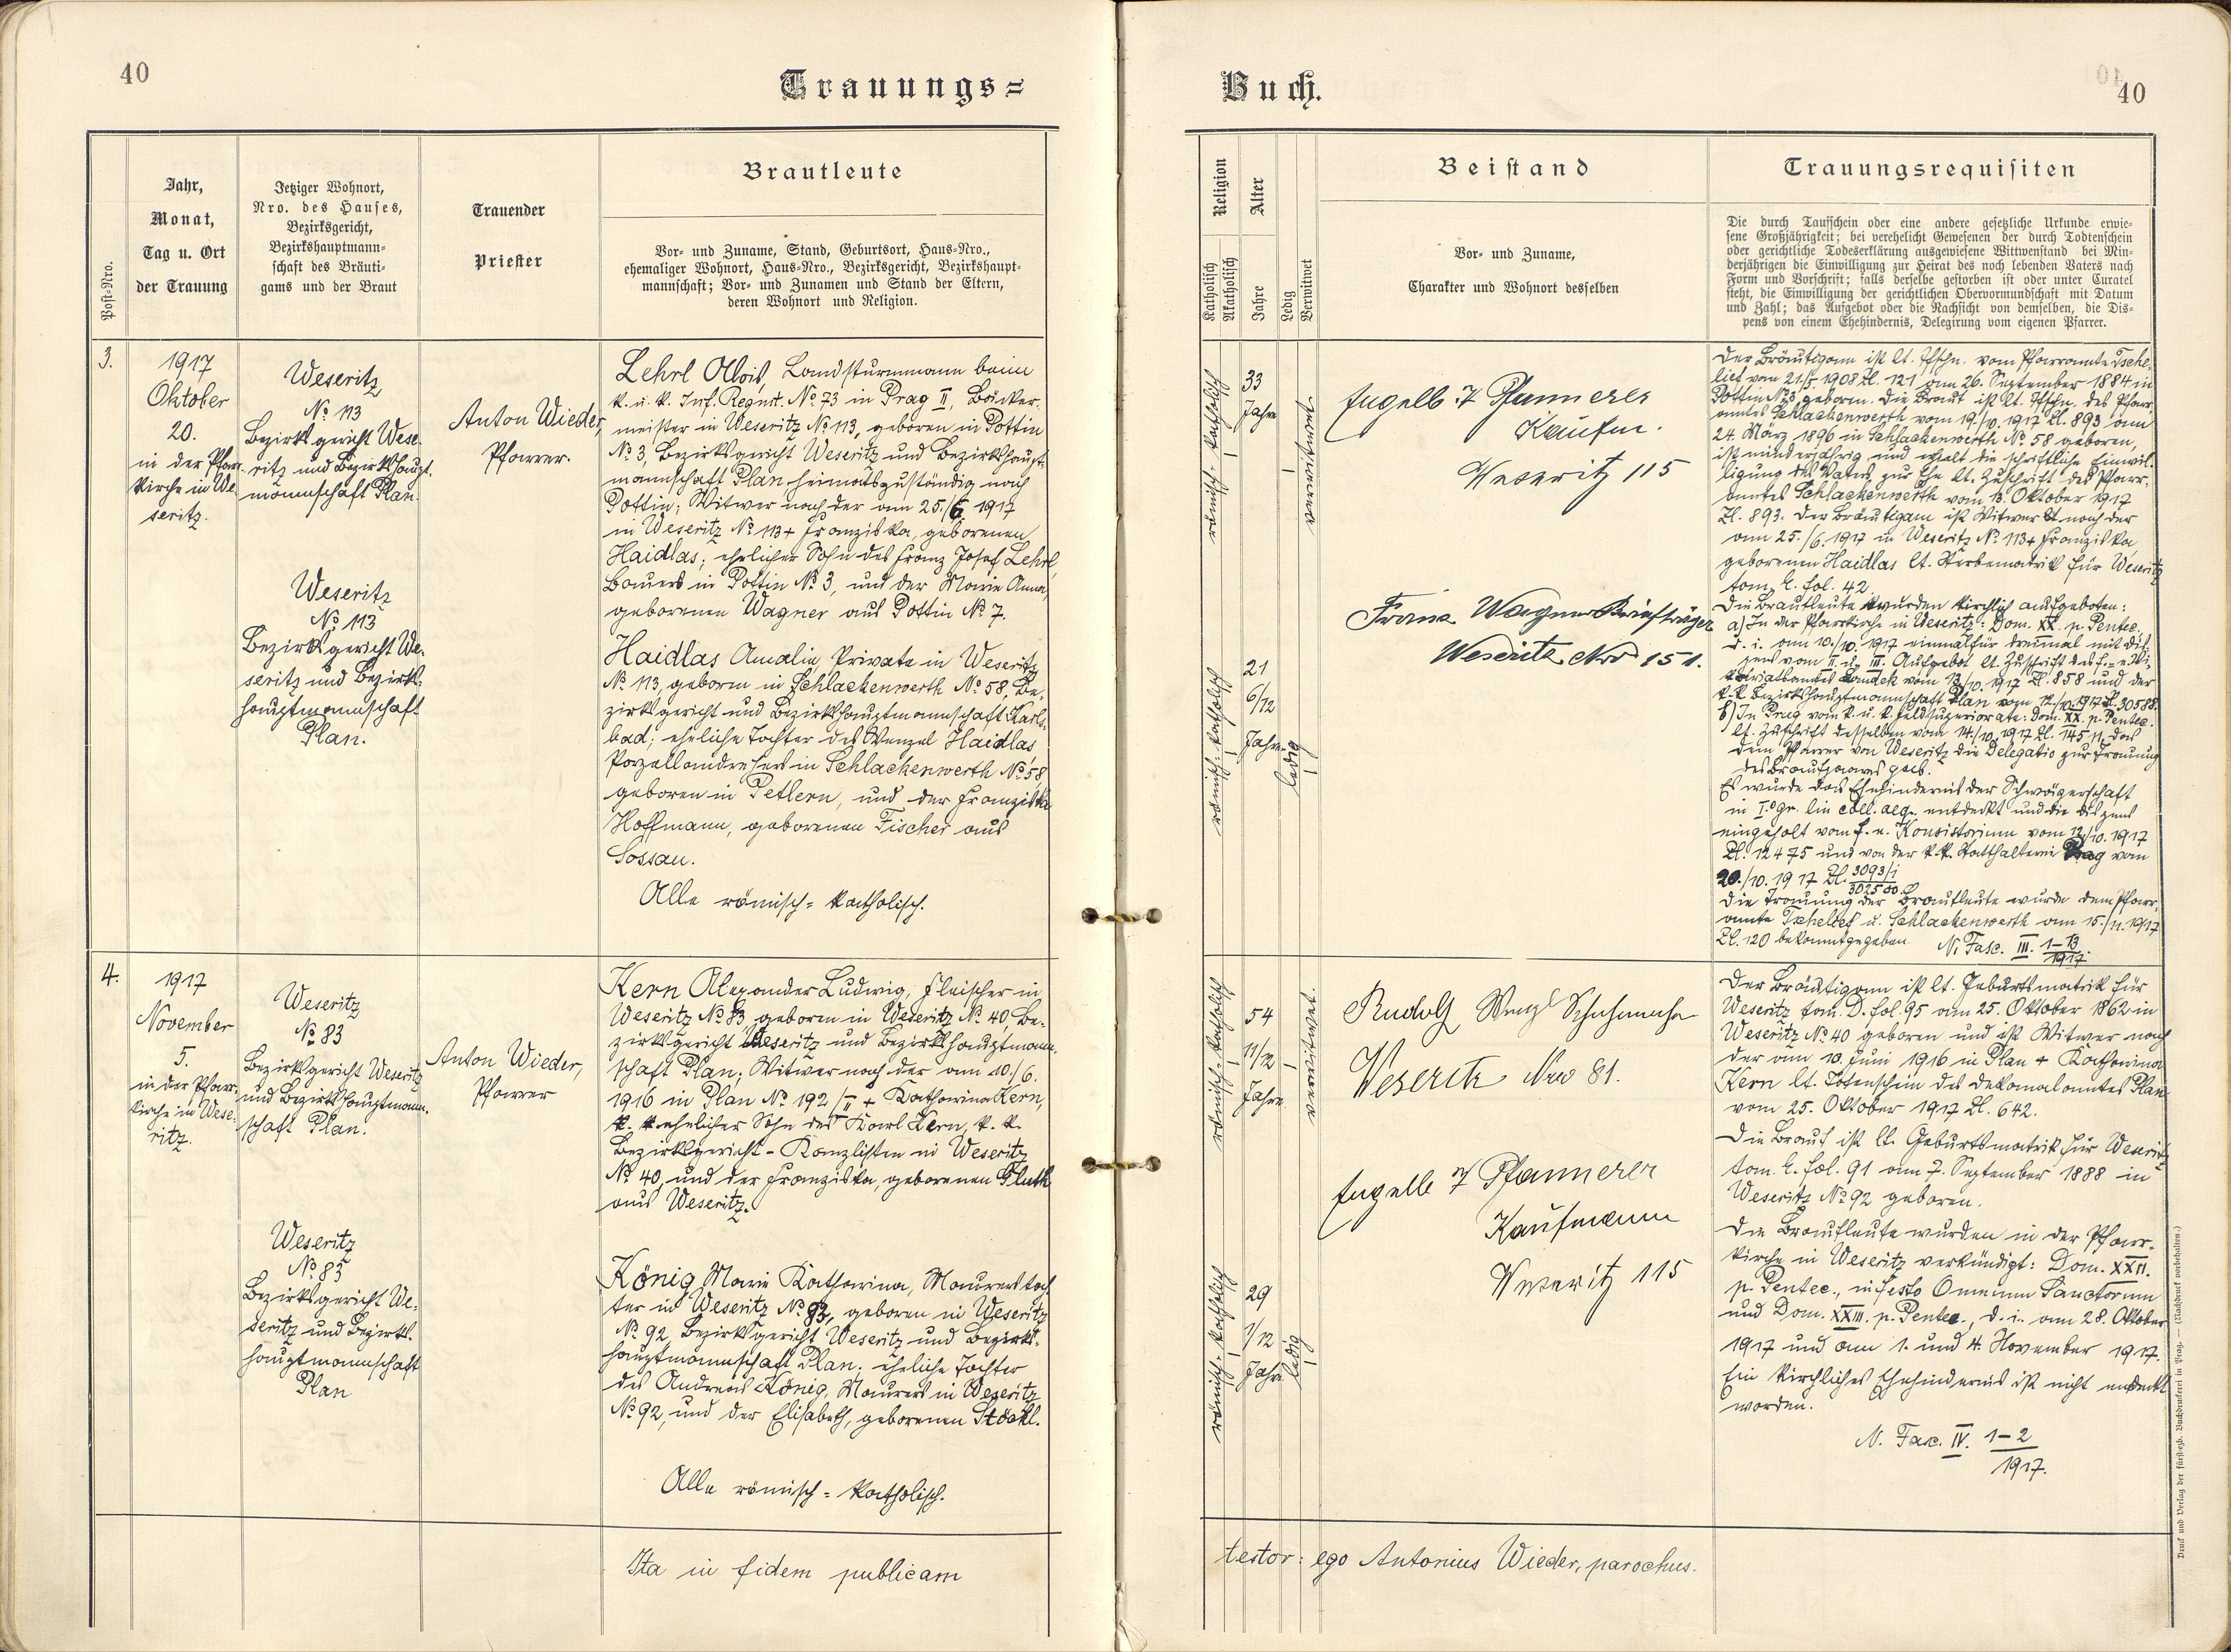 40
Trauungs=
Buch.
40
Post-Nro.
Jahr,
Monat,
Tag u. Ort
der Trauung
Jetziger Wohnort,
Nro. des Hauses,
Bezirksgericht,
Bezirkshauptmann-
schaft des Bräuti-
gams und der Braut
Trauender
Priester
Brautleute
Vor- und Zuname, Stand, Geburtsort, Haus-Nro.,
ehemaliger Wohnort, Haus-Nro., Bezirksgericht, Bezirkshaupt-
mannschaft; Vor- und Zunamen und Stand der Eltern,
deren Wohnort und Religion.
Religion
Katholisch
Akatholisch
Alter
Jahre
Ledig
Verwitwet
Beistand
Vor- und Zuname,
Charakter und Wohnort desselben
Trauungsrequisiten
Die durch Taufschein oder eine andere gesetzliche Urkunde erwie-
sene Großjährigkeit; bei verehelicht Gewesenen der durch Todtenschein
oder gerichtliche Todeserklärung ausgewiesene Wittwenstand bei Min-
derjährigen die Einwilligung zur Heirat des noch lebenden Vaters nach
Form und Vorschrift; falls derselbe gestorben ist oder unter Curatel
steht, die Einwilligung der gerichtlichen Obervormundschaft mit Datum
und Zahl; das Aufgebot oder die Nachsicht von demselben, die Dis-
pens von einem Ehehindernis, Delegirung vom eigenen Pfarrer.
3.
1917
Oktober
20.
in der Pfarr-
kirche in We-
seritz.
Weseritz
No 113
Bezirksgericht Wese-
ritz und Bezirkshaupt-
mannschaft Plan.
Weseritz
No 113
Bezirksgericht We-
seritz und Bezirks-
hauptmannschaft
Plan.
Anton Wieder,
Pfarrer.
Lehrl Alois, Landsturmmann beim
k. u. k. Inf. Regmt. No 73 in Prag II, Bäcker-
meister in Weseritz No 113, geboren in Pottin
No 3, Bezirksgericht Weseritz und Bezirkshaupt-
mannschaft Plan heimatszuständig nach
Pottin; Witwer nach der am 25./6. 1917
in Weseritz No 113 + Franziska, geborenen
Haidlas; ehelicher Sohn des Franz Josef Lehrl,
Bauers in Pottin No 3, und der Marie Anna,
geborenen Wagner aus Pottin No 7.
Haidlas Amalia, Private in Weseritz
No 113, geboren in Schlackenwerth No 58, Be-
zirksgericht und Bezirkshauptmannschaft Karls-
bad; eheliche Tochter des Wenzel Haidlas
Porzellandrehers in Schlackenwerth No 58
geboren in Petlern, und der Franziska
Hoffmann, geborenen Fischer aus
Sossau.
Alle römisch=katholisch.
römisch-katholisch
33
Jahre
verwitwet
römisch-katholisch
21
6/12
Jahre
ledig
Engelb. J Pfannerer
Kaufm.
Weseritz 115
Franz Wagner Briefträger
Weseritz Nro 151.
Der Bräutigam ist lt. Tfschn. vom Pfarramte Tsche-
lief vom 21./5. 1908 Zl. 121 am 26. September 1884 in
Pottin No 3 geboren. Die Braut ist lt. Tfschn. des Pfarr-
amtes Schlackenwerth vom 19./10. 1917 Zl. 893 am
24. März 1896 in Schlackenwerth No 58 geboren,
ist minderjährig und erhielt die schriftliche Einwil-
ligung des Vaters zur Ehe lt. Zuschrift des Pfarr-
amtes Schlackenwerth vom 13. Oktober 1917
Zl. 893. Der Bräutigam ist Witwer nach der
am 25./6. 1917 in Weseritz No 113 + Franziska
geborenen Haidlas lt. Sterbematrik für Weseritz
tom. E. fol. 42.
Die Brautleute wurden kirchlich aufgeboten:
a) In der Pfarrkirche in Weseritz: Dom. XX. p. Pentec.
d. i. am 10./10. 1917 einmal für dreimal mit Dis-
pens vom II. u. III. Aufgebot lt. Zuschrift des f.-e. Vi-
kariatsamtes Landek vom 13./10. 1917 Zl. 858 und der
k. k. Bezirkshauptmannschaft Plan vom 12./10. 1917 Zl. 30588.
b) In Prag vom k. u. k. Feldsuperiorate: Dom. XX. p. Pentec.
lt. Zuschrift desselben vom 14./10. 1917 Zl. 14511, das
dem Pfarrer von Weseritz die Delegatio zur Trauung
des Brautpaares gab.
Es wurde das Ehehindernis der Schwägerschaft
in I.° gr. lin coll. aeq. entdeckt und die Dispens
eingeholt vom f. e. Konsistorium vom 12./10. 1917
Zl. 12475 und von der k. k. Statthalterei Prag vom
20./10. 1917 Zl. 3093/i
302500.
Die Trauung der Brautleute wurde dem Pfarr-
amte Tschelief u. Schlackenwerth am 15./11. 1917
Zl. 120 bekanntgegeben. N. Fasc. III. 1-13
1917.
4.
1917
November
5.
in der Pfarr-
kirche in Wese-
ritz.
Weseritz
No 83
Bezirksgericht Weseritz
und Bezirkshauptmann-
schaft Plan.
Weseritz
No 83
Bezirksgericht We-
seritz und Bezirks-
hauptmannschaft
Plan
Anton Wieder,
Pfarrer
Kern Alexander Ludwig, Fleischer in
Weseritz No 83, geboren in Weseritz No 40, Be-
zirksgericht Weseritz und Bezirkshauptmann-
schaft Plan; Witwer nach der am 10./6.
1916 in Plan No 192/II + Katharina Kern,
ehelicher Sohn des Karl Kern, k. k.
Bezirksgericht-Kanzlisten in Weseritz
No 40, und der Franziska, geborenen Gluth
aus Weseritz.
König Marie Katharina, Maurerstoch
ter in Weseritz No 92, geboren in Weseritz
No 92, Bezirksgericht Weseritz und Bezirks-
hauptmannschaft Plan; eheliche Tochter
des Andreas König, Maurers in Weseritz
No 92, und der Elisabeth, geborenen Stöckl.
Alle römisch=katholisch.
römisch-katholisch
54
11/12
Jahre
verwitwet.
römisch-katholisch
29
1/12
Jahre
ledig
Rudolf Wenzl
Weseritz Nro 81.
Engelb. J Pfannerer
Kaufmann
Weseritz 115
Der Bräutigam ist lt. Geburtsmatrik für
Weseritz tom. D. fol. 95 am 25. Oktober 1862 in
Weseritz No 40 geboren und ist Witwer nach
der am 10. Juni 1916 in Plan + Katharina
Kern lt. Totenschein des Dekanalamtes Plan
vom 25. Oktober 1917 Zl. 642.
Die Braut ist lt. Geburtsmatrik für Weseritz
tom. E. fol. 91 am 7. September 1888 in
Weseritz No 92 geboren.
Die Brautleute wurden in der Pfarr-
kirche in Weseritz verkündigt: Dom. XXII.
p. Pentec., in festo Omnium Sanctorum
und Dom. XXIII. p. Pentec., d. i. am 28. Oktober
1917 und am 1. und 4. November 1917.
Ein kirchliches Ehehindernis ist nicht entdeckt
worden.
N. Fasc. IV. 1-2
1917.
Ita in fidem publicam
testor: ego Antonius Wieder, parochus.
Druck und Verlag der fürsterzb. Buchdruckerei in Prag. — (Nachdruck vorbehalten.)